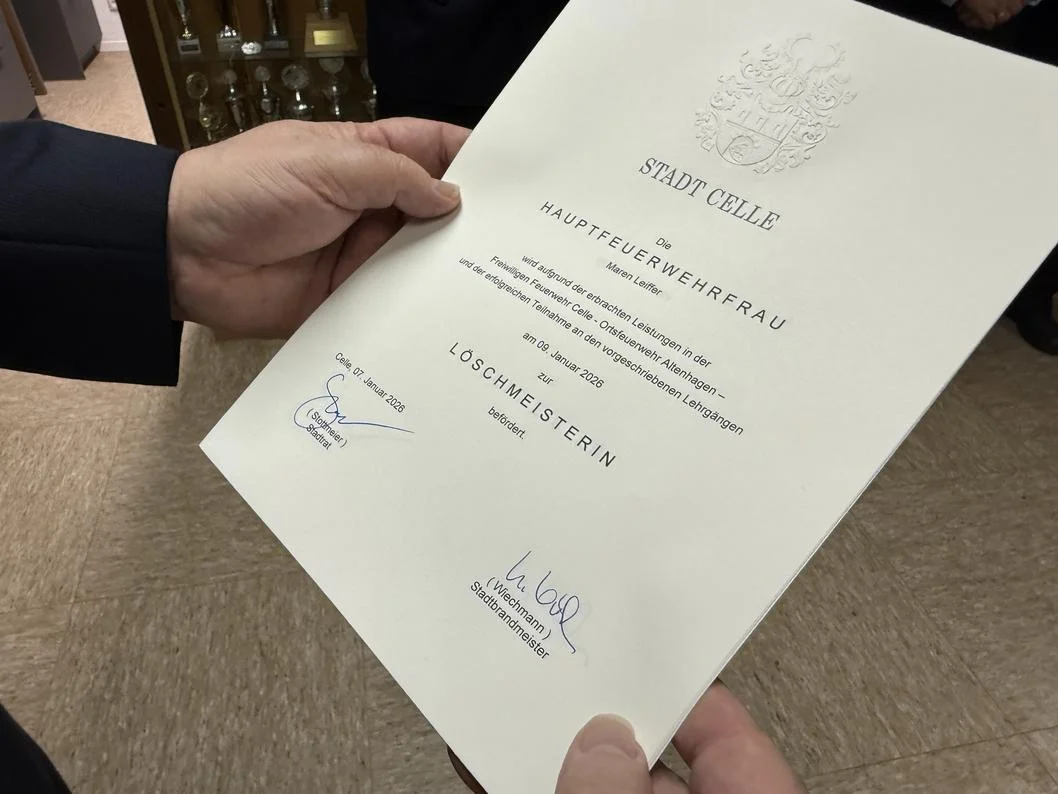 STADT CELLE
Die
HAUPTFEUERWEHRFRAU
Maren Leiffer
wird aufgrund der erbrachten Leistungen in der
Freiwilligen Feuerwehr Celle - Ortsfeuerwehr Altenhagen –
und der erfolgreichen Teilnahme an den vorgeschriebenen Lehrgängen
am 09. Januar 2026
zur
LÖSCHMEISTERIN
befördert.
Celle, 07. Januar 2026
( Stottmeier )
Stadtrat
( Wiechmann )
Stadtbrandmeister